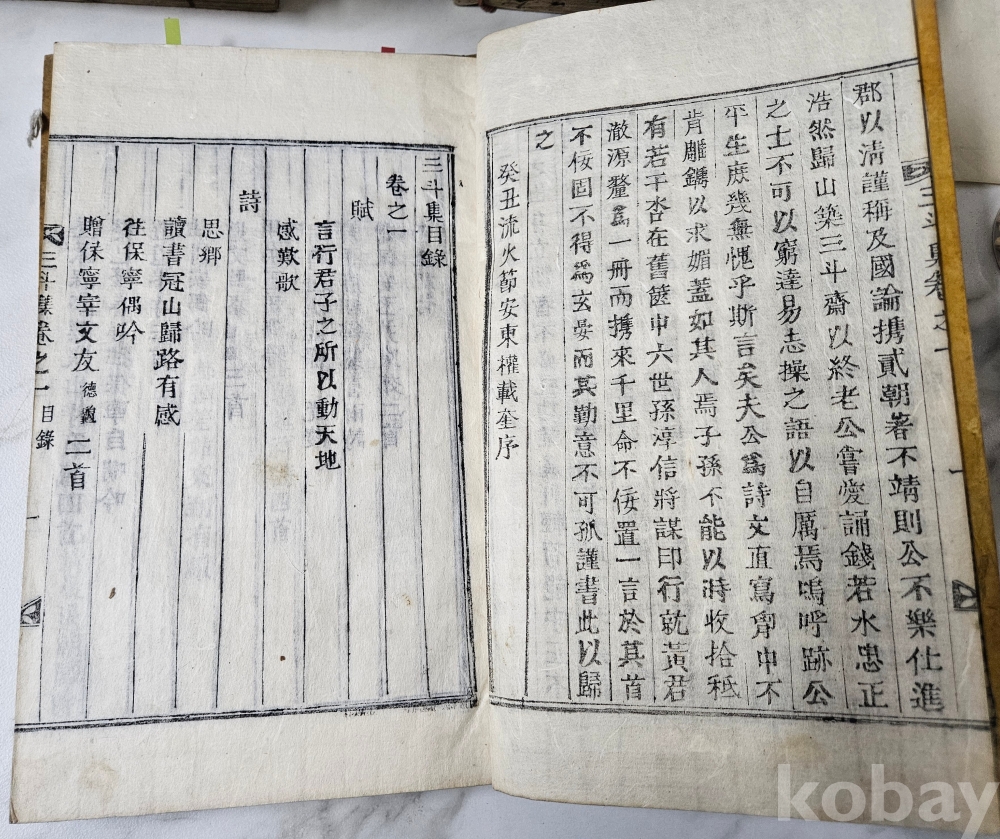 郡以淸謹稱及國論携貳朝著不靖則公不樂仕進
浩然歸山築三斗齋以終老公嘗愛誦錢若水忠正
之士不可以窮達易志操之語以自厲焉嗚呼跡公
平生庶幾無愧乎斯言矣夫公爲詩文直寫胸中不
肯雕鐫以求媚蓋如其人焉子孫不能以時收拾秪
有若干杏在舊篋中六世孫淳信將謀印行就黃君
澈源釐爲一冊而携來千里命不佞置一言於其首
不佞固不得爲玄晏而其勤意不可孤謹書此以歸
之
癸丑流火節安東權載奎序
三斗集目錄
卷之一
賦
言行君子之所以動天地
感歎歌
詩
思鄕
讀書冠山歸路有感
往保寧偶吟
贈保寧宰文友 二首
卷之一 目錄
kobay